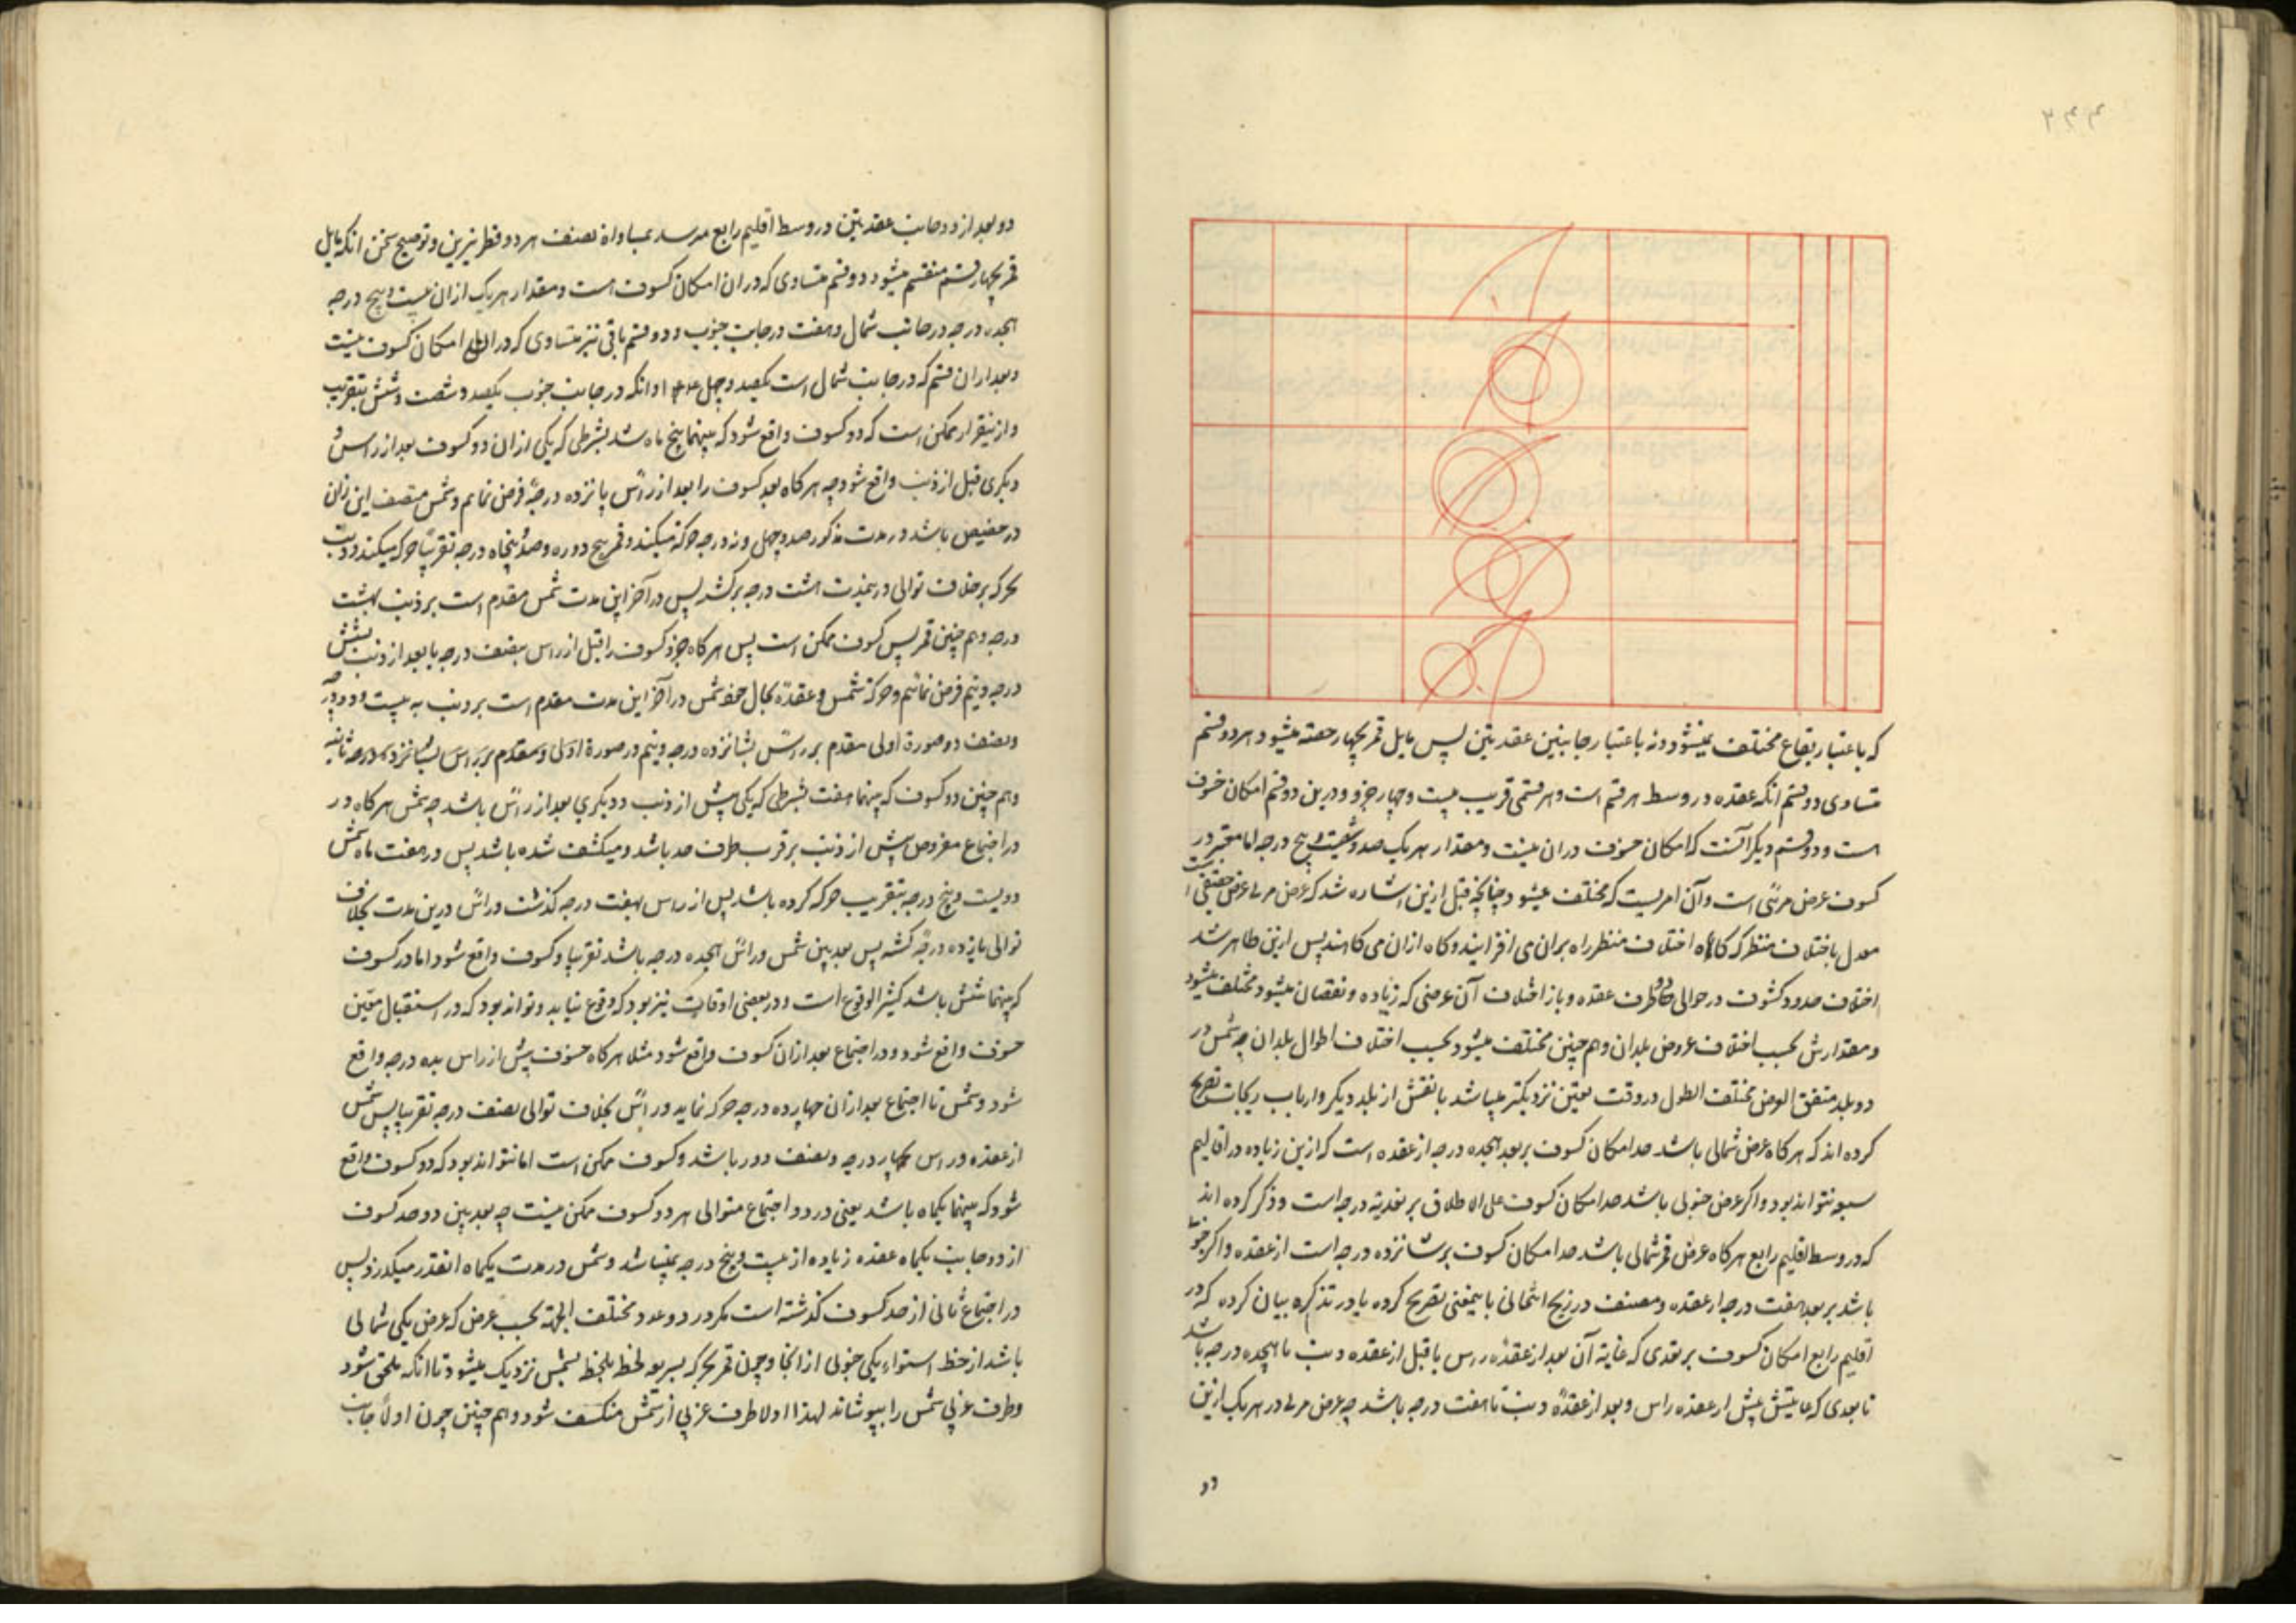 ۲۴۳
که باعتبار بقاع مختلف نمیشود ونه باعتبار جانبین عقدتین پس مایل قمر بچهار حصه میشود هر دو قسم
متساوی دو قسم آنکه عقده در وسط هر قسم است وهر قسمی قریب بیست وچهار جزو ودرین دو قسم امکان خسوف
است ودو قسم دیگر آنست که امکان خسوف دران نیست ومقدار هر یک صد وشصت وپنج درجه اما معتبر در
کسوف عرض مرئی است وآن امریست که مختلف میشود چنانچه قبل ازین اشاره شد که عرض مرئی عرض حقیقی است
معدل باختلاف منظر که کاه اختلاف منظر را بران می افزایند وکاه ازان می کاهند پس ازین ظاهر شد
اختلاف حدود کسوف در حوالی دو طرف عقده وباز اختلاف آن عرضی که زیاده ونقصان میشود مختلف میشود
ومقدارش بحسب اختلاف عروض بلدان وهم چنین مختلف میشود بحسب اختلاف اطوال بلدان چه شمس در
دو بلد متفق العرض مختلف الطول در وقت معین نزدیکتر میباشد بافقش از بلد دیگر وارباب زیجات تصریح
کرده اند که هر کاه عرض شمالی باشد حد امکان کسوف بر بعد هجده درجه از عقده است که ازین زیاده در اقالیم
سبعه نتواند بود واکر عرض جنوبی باشد حد امکان کسوف علی الاطلاق بر درجه است وذکر کرده اند
که در وسط اقلیم رابع هر کاه عرض قمر شمالی باشد حد امکان کسوف بر شانزده درجه است از عقده واکر جنوبی
باشد بر بعد هفت درجه از عقده ومصنف در زیج ایلخانی باینمعنی تصریح کرده یا در تذکره بیان کرده که در
اقلیم رابع امکان کسوف بر بعدی که غایة آن بعد از عقده راس یا قبل از عقده ذنب تا هیجده درجه باشد
تا بعدی که غایتش پیش از عقده راس وبعد از عقده ذنب تا هفت درجه باشد چه عرض مرئی در هر یک ازین
دو
دو بعد از دو جانب عقدتین در وسط اقلیم رابع میرسد بمساواة نصف هر دو قطر نیرین وتوضیح سخن آنکه مایل
قمر بچهار قسم منقسم میشود دو قسم متساوی که دران امکان کسوف است ومقدار هر یک ازان بیست وپنج درجه
هجده درجه در جانب شمال وهفت در جانب جنوب ودو قسم باقی نیز متساوی که دران امکان کسوف نیست
وبعد ازان قسم که در جانب شمال است یکصد وچهل وآنکه در جانب جنوب یکصد وشصت وشش بتقریب
وازینقرار ممکن است که دو کسوف واقع شود که بینهما پنج ماه شد بشرطی که یکی ازان دو کسوف بعد از راس و
دیکری قبل از ذنب واقع شود چه هر کاه بعد کسوف را بعد از راس پانزده درجه فرض نمائیم وشمس منتصف این زمان
در حضیض باشد در مدت مذکور صد وچهل ونه درجه حرکة میکند وقمر پنج دوره وصد وپنجاه درجه تقریبا حرکه میکند وذنب
بحرکه بر خلاف توالی درینمدت هشت درجه برکشد پس در آخر این مدت شمس مقدم است بر ذنب بهشت
درجه وهم چنین قمر پس کسوف ممکن است پس هر کاه جزو کسوف را قبل از راس بنصف درجه یا بعد از ذنب بشش
درجه ونیم فرض نمائیم وحرکة شمس وعقده بحال خود شمس در آخر این مدت مقدم است بر ذنب به بیست ودو درجه
ونصف در صورة اولی مقدم بر راس بشانزده درجه ونیم در صورة
وهم چنین دو کسوف که بینهما هفت بشرطی که یکی پیش از ذنب ودیکری بعد از راس باشد چه شمس هر کاه در
در اجتماع مفروض پیش از ذنب بر قرب طرف حد باشد ومنکشف شده باشد پس در هفت ماه شمس
دویست وپنج درجه بتقریب حرکه کرده باشد پس از راس بهفت درجه کذشت وراس درین مدت بخلاف
توالی یازده درجه کشته پس بعد بین شمس وراس هجده درجه باشد تقریبا وکسوف واقع شود اما در کسوف
که بینهما شش باشد کثیر الوقوع است ودر بعضی اوقات نیز بود که وقوع نیابد وتواند بود که در استقبال معین
خسوف واقع شود ودر اجتماع بعد ازان کسوف واقع شود مثلا هر کاه خسوف پیش از راس بده درجه واقع
شود وشمس تا اجتماع بعد ازان چهارده درجه حرکه نماید وراس بخلاف توالی بنصف درجه تقریبا پس شمس
از عقده وراس بچهار درجه ونصف دور باشد وکسوف ممکن است اما نتواند بود که دو کسوف واقع
شود که بینهما یکماه باشد یعنی در دو اجتماع متوالی هر دو کسوف ممکن نیست چه بعد بین دو حد کسوف
از دو جانب یکماه عقده زیاده از بیست وپنج درجه نمیباشد وشمس در مدت یکماه انقدر میکذرد پس
در اجتماع ثانی از حد کسوف کذشته است مکر در دو عدد مختلف الجهة بحسب عرض که عرض یکی شمالی
باشد از خط استواء ویکی جنوبی از انجا وچون قمر بحرکه سریعه لحظه بلحظه بشمس نزدیک میشود تا انکه ملحق شود
وطرف غربی شمس را بپوشاند لهذا اولا طرف غربی از شمس منکسف شود وهم چنین چون اولا جانب